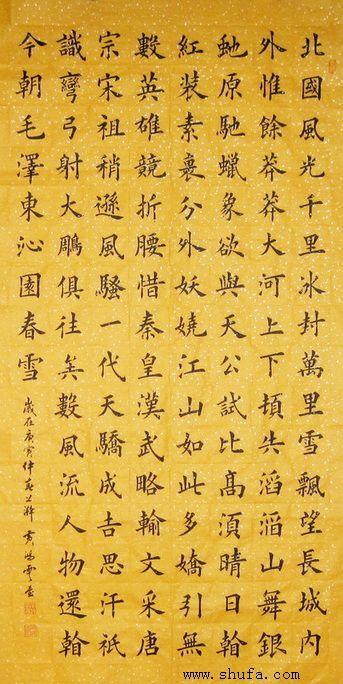 北國風光千里冰封萬里雪飄望長城內
外惟餘莽莽大河上下頓失滔滔山舞銀
虵原馳蠟象欲與天公試比高須晴日翰
紅装素裹分外妖嬈江山如此多嬌引無
數英雄競折腰惜秦皇漢武略輸文采唐
宗宋祖稍遜風騷一代天驕成吉思汗祇
識彎弓射大鵰俱往矣數風流人物還翰
今朝毛澤東沁園春雪
歲在庚寅仲春上澣
www.shufa.com